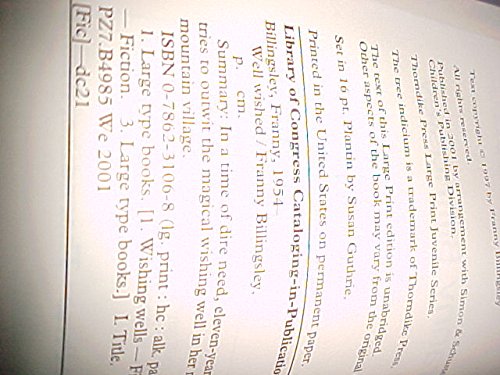 Text copyright © 1997 by Franny Billingsley
All rights reserved.
Published in 2001 by arrangement with Simon & Schus
Children's Publishing Division.
Thorndike Press Large Print Juvenile Series.
The tree indicium is a trademark of Thorndike Press.
The text of this Large Print edition is unabridged.
Other aspects of the book may vary from the original
Set in 16 pt. Plantin by Susan Guthrie.
Printed in the United States on permanent paper.
Library of Congress Cataloging-in-Publicatio
Billingsley, Franny, 1954–
Well wished / Franny Billingsley.
p. cm.
Summary: In a time of dire need, eleven-year
tries to outwit the magical wishing well in her
mountain village.
ISBN 0-7862-3106-8 (lg. print : hc : alk. pa
1. Large type books. [1. Wishing wells — F
— Fiction. 3. Large type books.] I. Title.
PZ7.B4985 We 2001
[Fic]—dc21